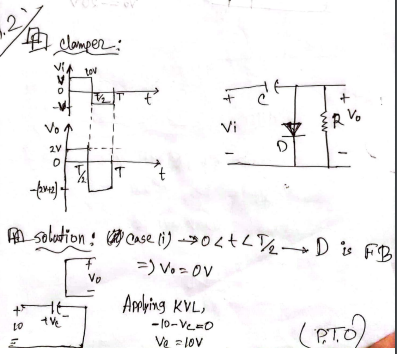 .2
Clamper:
Vi
V
10V
0
-V
T/2
T
t
Vo
2V
0
T/2
T
t
+
C
+
Vi
D
R
Vo
-
-
solution: case (i) → 0 < t < T/2 → D is FB
+
Vo
-
⇒ Vo = 0V
Applying KVL,
-10-Vc=0
Vc = 10V
+
10
+Vc
-
(P.T.O)